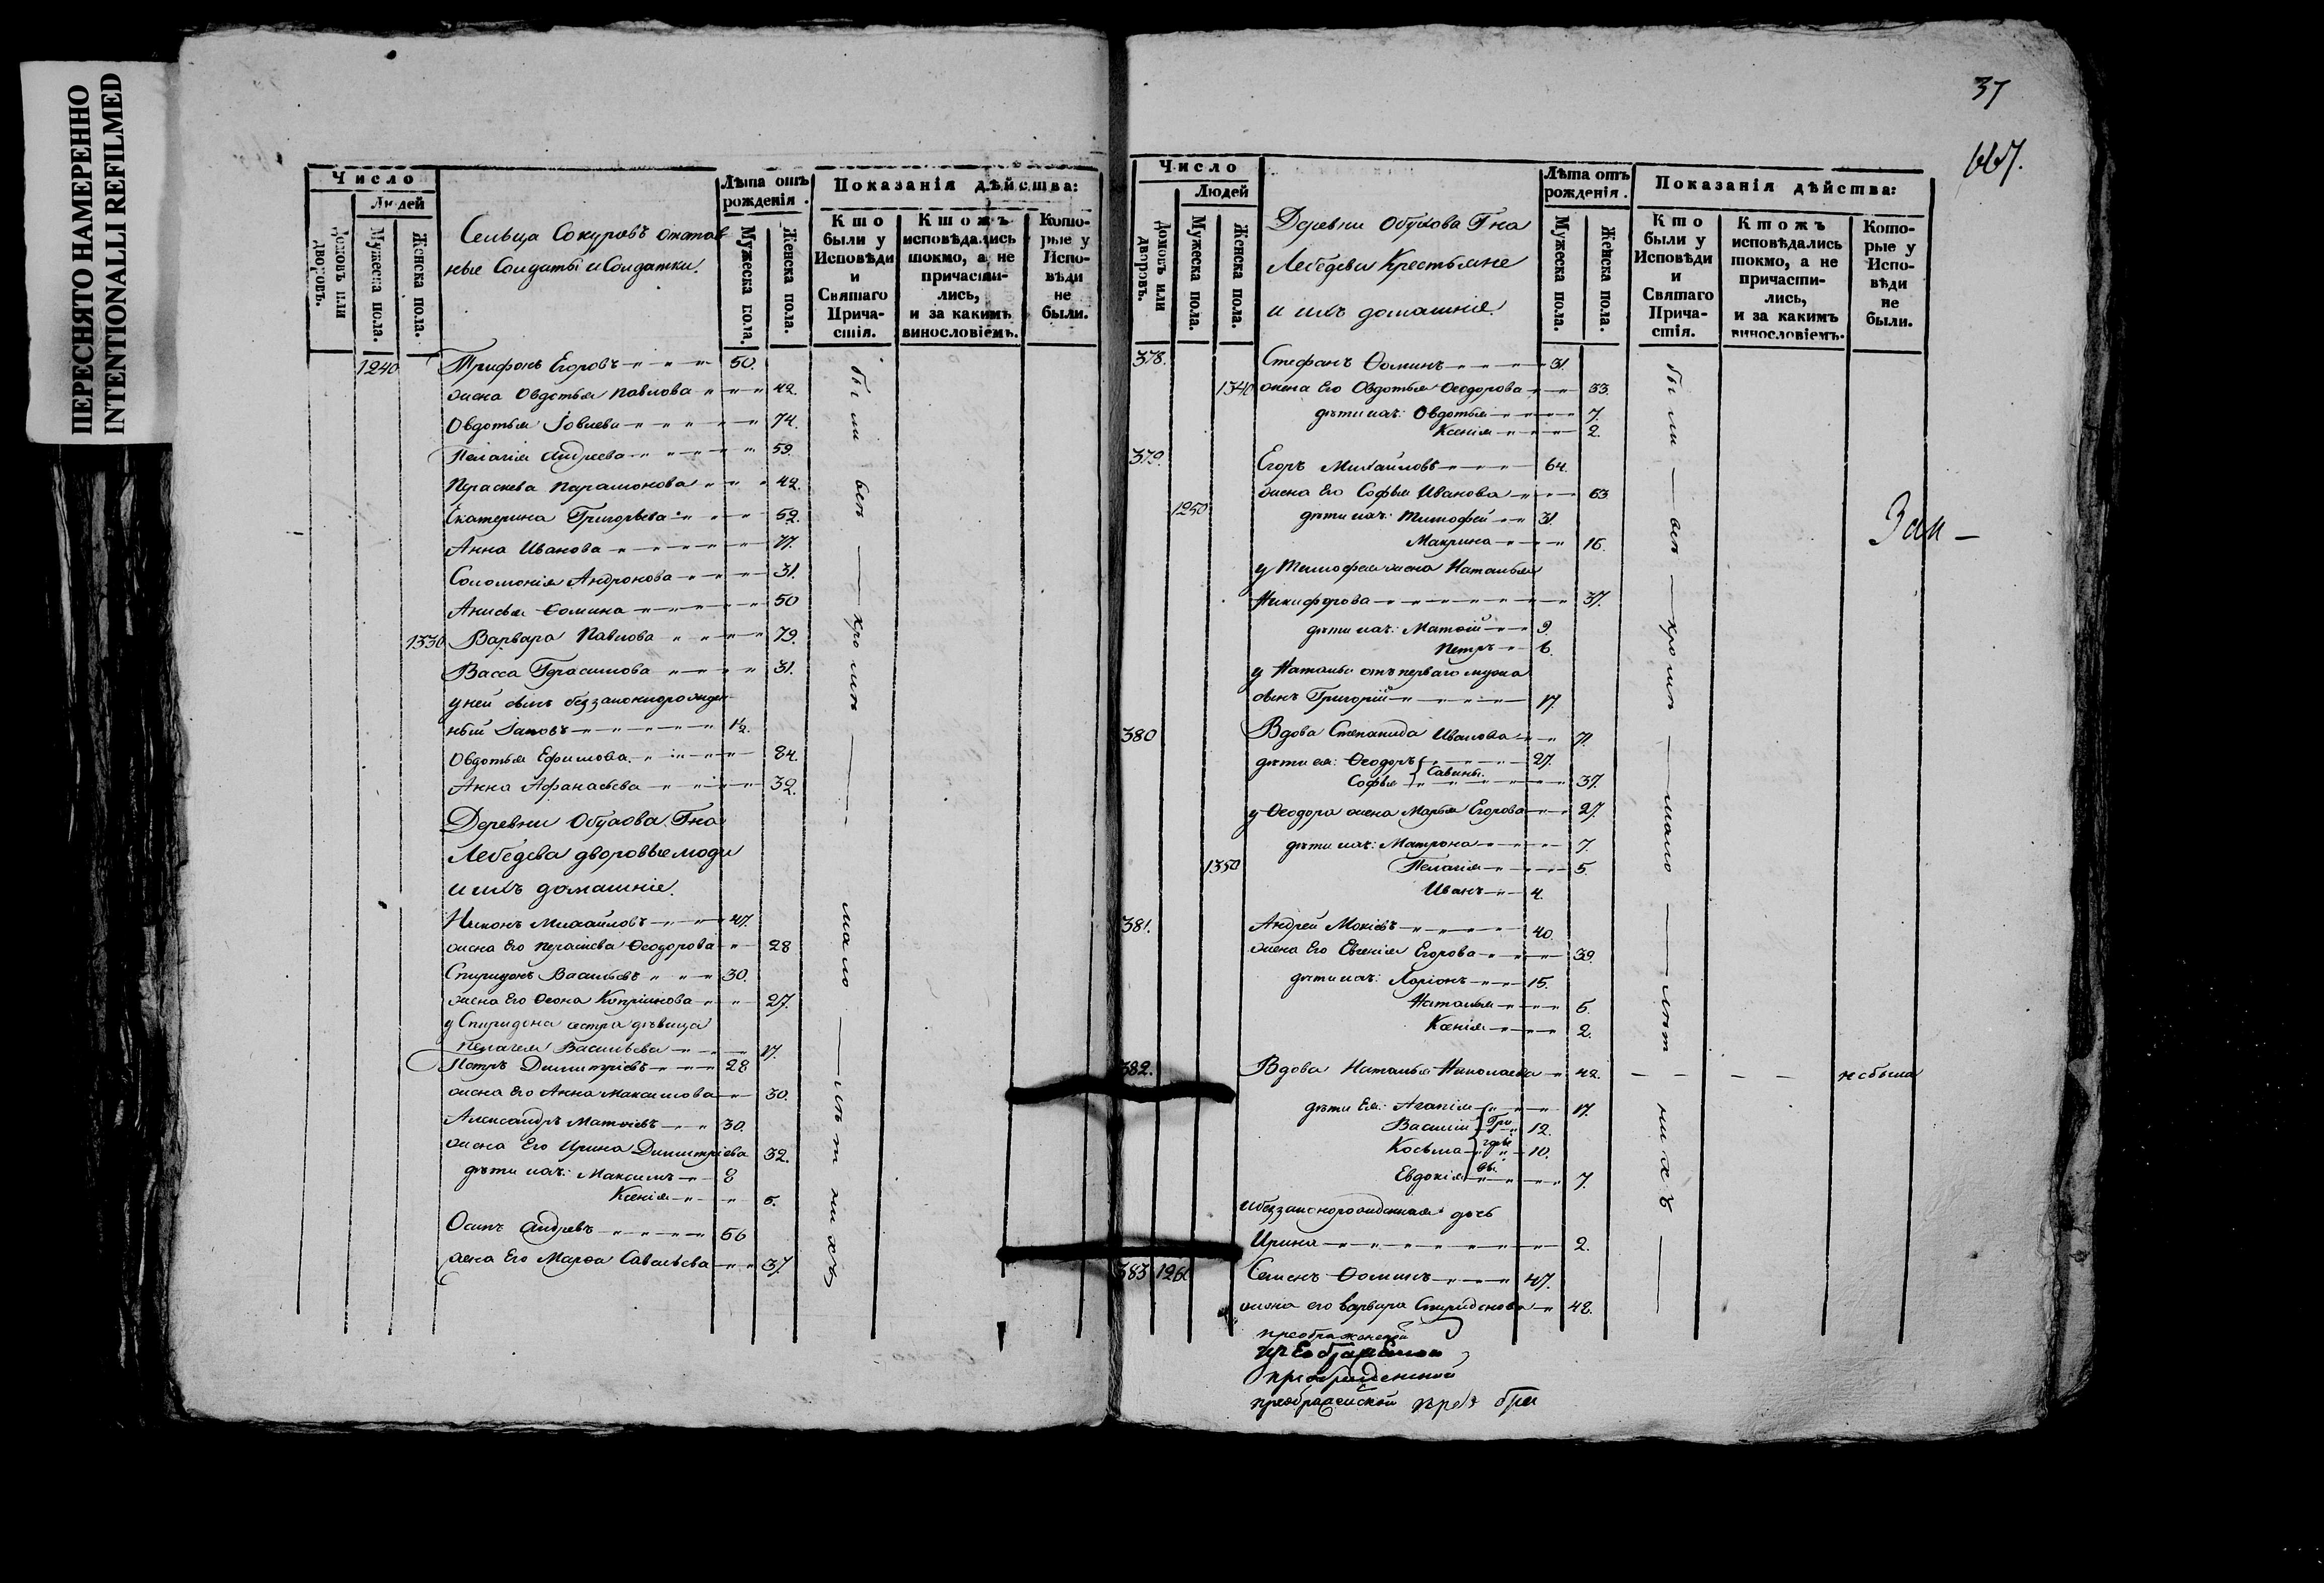 ПЕРЕСНЯТО НАМЕРЕННО
INTENTIONALLI REFILMED
Число
Людей
Домовъ или дворовъ.
Мужеска пола.
Женска пола.
Сельца Сокуровъ отстав
ные Солдаты и Солдатки.
Лѣта отъ рождения.
Мужеска пола.
Женска пола.
Показанія дѣйства:
Кто были у Исповѣди и Святаго Причастія.
Ктожъ исповѣдались токмо, а не причастились, и за какимъ винословіемъ.
Которые у Исповѣди не были.
1240 Трифонъ Егоровъ 50.
жена Овдотья Павлова 42.
Овдотья Іовлева 74.
Пелагія Андреева 59.
Параскева Парамонова 42.
Екатерина Григорьева 52.
Анна Иванова 77.
Соломонія Андронова 31.
Анисья Ѳомина 50
1330 Варвара Павлова 79.
Васса Герасимова 31.
у ней сынъ беззаконнорожден
ный Іаковъ 1½.
Овдотья Ефимова 84.
Анна Афанасьева 32.
Деревни Обухова Гна
Лебедева дворовые люди
и ихъ домашніе.
Никонъ Михайловъ 47.
жена Его Параскева Ѳеодорова 28
Спиридонъ Васильевъ 30.
жена Его Ѳеона Кипріянова 27.
у Спиридона сестра дѣвица
Пелагея Васильева 17.
Петръ Димитріевъ 28
жена Его Анна Максимова 30.
Александръ Матѳіевъ 30.
жена Его Ирина Димитріева 32.
дѣти ихъ: Максимъ 8
Ксенія 5.
Осипъ Андревъ 56
жена Его Марѳа Савельева 37.
были всѣ кромѣ мало лѣтнихъ
37
Число
Людей
Домовъ или дворовъ.
Мужеска пола.
Женска пола.
Деревни Обухова Гна
Лебедева Крестьяне
и ихъ домашніе.
Лѣта отъ рожденія.
Мужеска пола.
Женска пола.
Показанія дѣйства:
Кто были у Исповѣди и Святаго Причастія.
Ктожъ исповѣдались токмо, а не причастились, и за какимъ винословіемъ.
Которые у Исповѣди не были.
378. Стефанъ Ѳоминъ 31.
1340 жена Его Овдотья Ѳеодорова 33.
дѣти ихъ: Овдотья 7.
Ксенія 2.
379. Егоръ Михайловъ 64.
жена Его Софья Иванова 63
1250 дѣти ихъ: Тимофей 31.
Макрина 16.
у Тимофея жена Наталья
Никифорова 37.
дѣти ихъ: Матѳій 9.
Петръ 6.
у Натальи отъ перваго мужа
сынъ Григорій 17.
380 Вдова Степанида Иванова 71.
дѣти ея: Ѳеодоръ 27.
Савины.
Софья 37.
у Ѳеодора жена Марья Егорова 27.
дѣти ихъ: Матрона 7.
1350 Пелагія 5.
Иванъ 4.
381. Андрей Мокіевъ 40
жена Его Евгенія Егорова 39.
дѣти ихъ: Ларіонъ 15.
Наталья 5.
Ксенія 2.
382. Вдова Наталья Николаева 42. не была
дѣти Ея: Агапія 17.
Василій 12.
Косьма 10.
Евдокія 7.
Григорьевы.
и беззаконнорожденная дочь
Ирина 2.
383 1260 Семенъ Ѳоминъ 47.
жена его Варвара Спиридонова 48.
были всѣ кромѣ мало лѣтнихъ
Зам –
преображенской
преображенской
преображенской